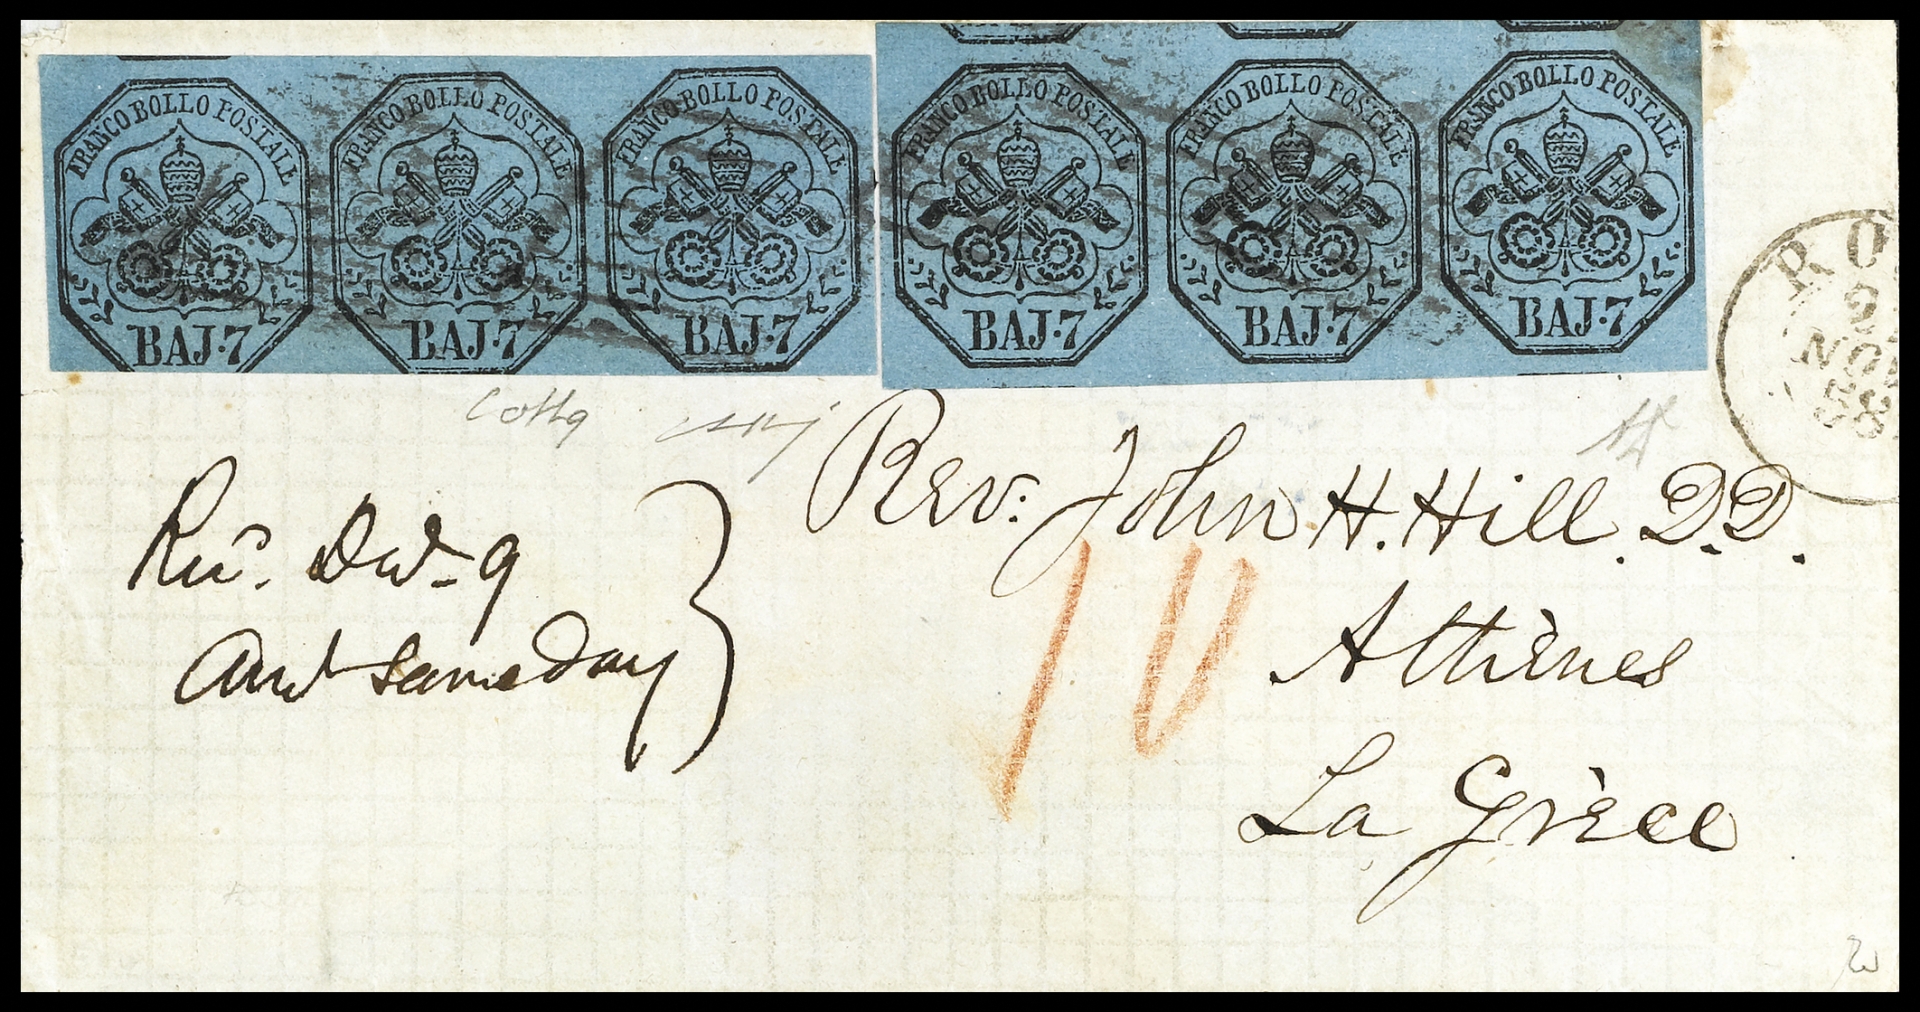 FRANCO BOLLO POSTALE
BAJ. 7
FRANCO BOLLO POSTALE
BAJ. 7
FRANCO BOLLO POSTALE
BAJ. 7
FRANCO BOLLO POSTALE
BAJ. 7
FRANCO BOLLO POSTALE
BAJ. 7
FRANCO BOLLO POSTALE
BAJ. 7
RO
2
NOV
58
Rev. John H. Hill. D.D.
Athènes
La Grèce
10
Recd. Decr. 9
Ansd same day